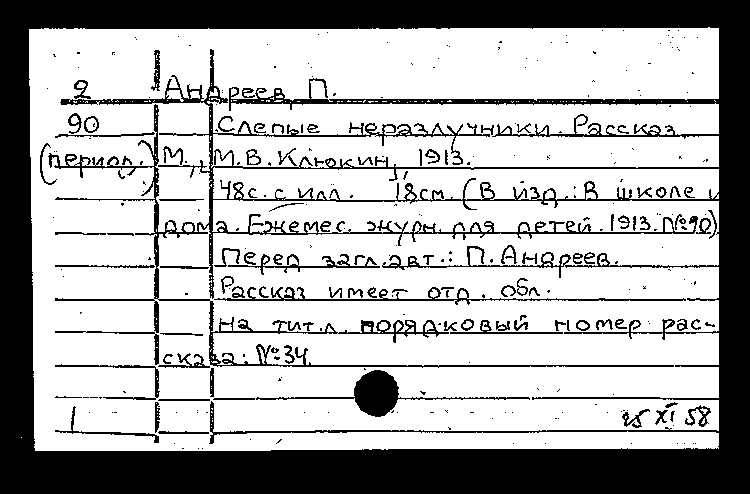 2 Андреев, П.
90 Слепые неразлучники. Рассказ.
(период.) М., М.В. Клюкин, 1913.
48с. с илл. 18см. (В изд.: В школе и
дома. Ежемес. журн. для детей. 1913. №90)
Перед загл. авт.: П. Андреев.
Рассказ имеет отд. обл.
На тит. л. порядковый номер рас-
сказа: №34.
1 25 XI 58